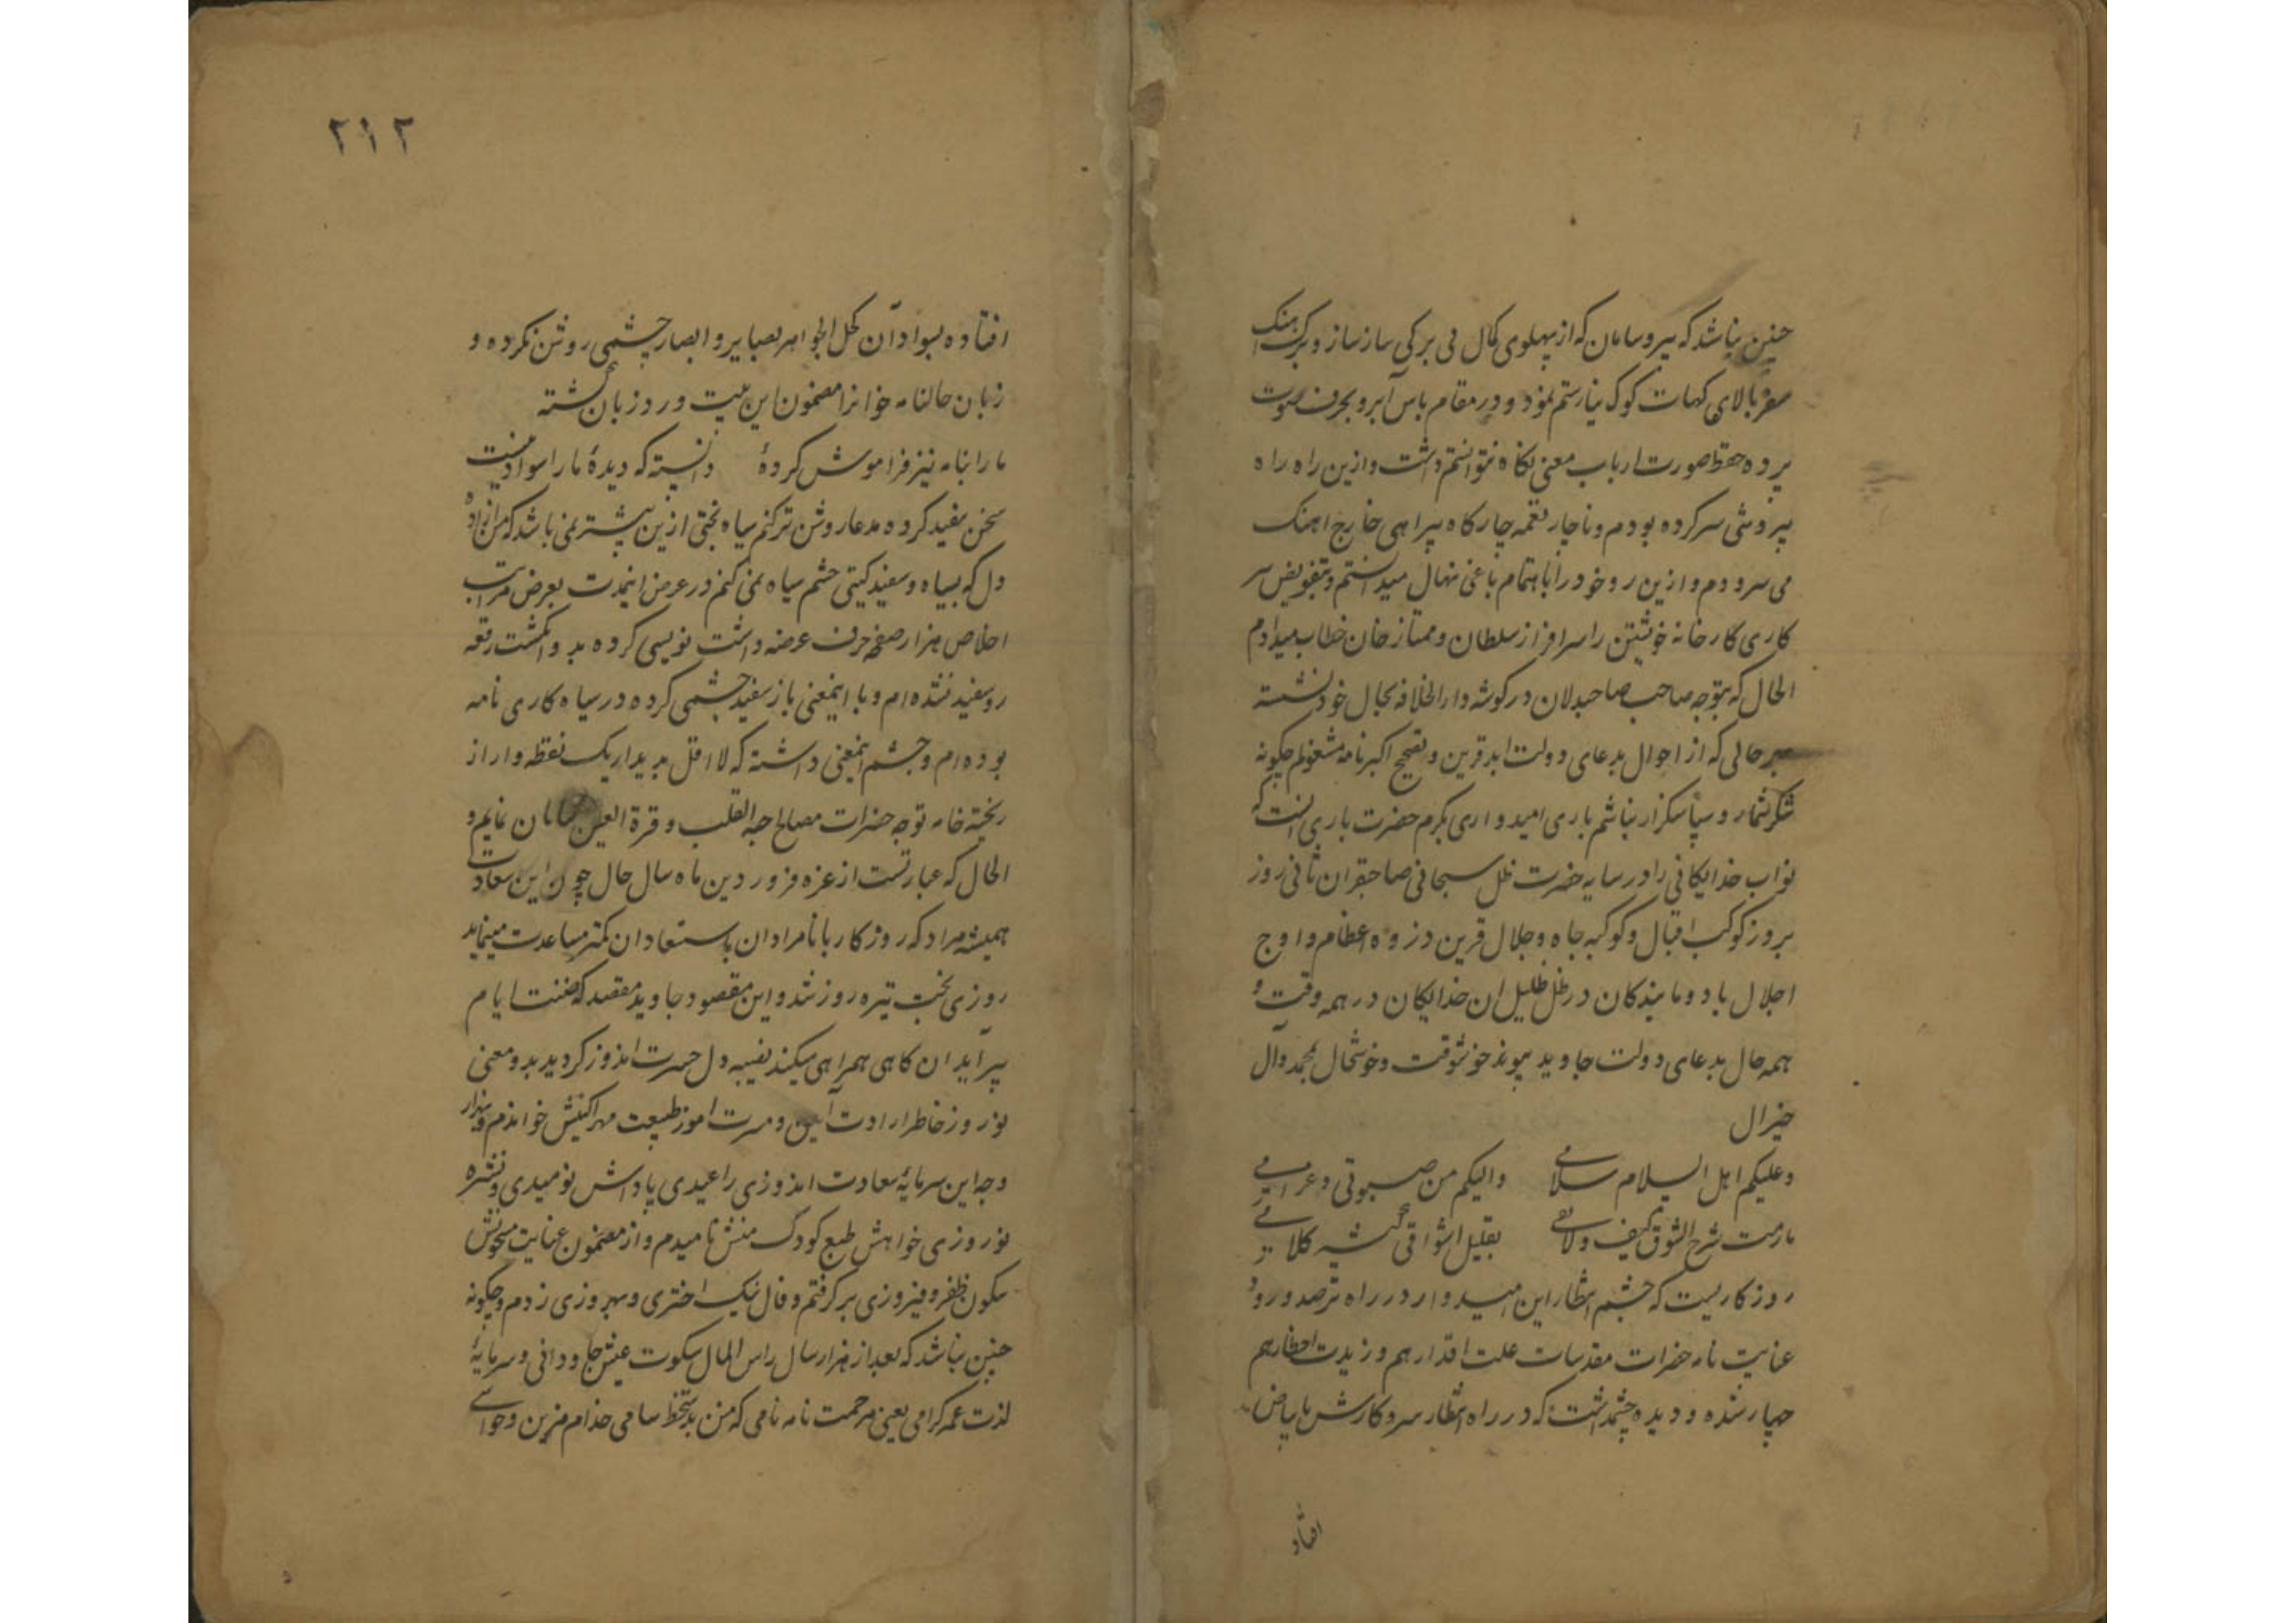 چنین نباشد که بیروسامان که از پهلوی کمال بی برکی ساز ساز و برک اهنک
سفر بالای کهات کوک نیارستم نمود و در مقام پاس آبرو بحرف صوت
پرده حفظ صورت ارباب معنی نکاه نتوانستم داشت و ازین راه راه
پیروشی سر کرده بودم و ناچار نغمه چارکاه بیراهی خارج اهنک
می سرودم و ازین رو خود را باهتمام باغی نهال میدانستم و بتفویض سر
کاری کارخانه خویشتن را سرافراز سلطان و ممتاز خان خطاب میدادم
الحال که بتوجه صاحب صاحبدلان در کوشه دار الخلافه بحال خود نشسته
بهر حالی که از احوال بدعای دولت ابد قرین و تصحیح اکبر نامه مشغولم چکونه
شکر شمار و سپاسکزار نباشم باری امیدواری بکرم حضرت باری انست که
نواب خدایکانی را در سایه حضرت ظل سبحانی صاحبقران ثانی روز
بروز کوکب اقبال و کوکبه جاه و جلال قرین ذروه اعظام و اوج
اجلال باد و ما بندکان در ظل ظلیل ان خدایکان در همه وقت و
همه حال بدعای دولت جاوید پیوند خوشوقت و خوشحال بمحمد و آل
خیر ال
وعلیکم اهل السلام سلامی والیکم من صبوتی و غرامی
مارمت شرح الشوق کیف ولائمی بقلیل اشواقی کثیر کلامی
روزکاریست که چشم انتظار این امیدوار در راه ترصد ورود
عنایت نامه حضرات مقدسات علت اقدارهم و زیدت اخطارهم
چهار شده و دیده چشمداشت که در راه انتظار سر و کارش با بیاض
افتاد
۲۱۲
افتاده بسواد آن کحل الجواهر بصایر و ابصار چشمی روشن نکرده و
زبان حالنامه خوانرا مضمون این بیت ورد زبان کشته
ما را بنامه نیز فراموش کردهٔ دانسته که دیدهٔ ما را سواد نیست
سخن سفید کرده مدعا روشن تر کنم سیاه بختی ازین بیشتر نمی باشد که من ازاده
دل که بسیاه و سفید کیتی چشم سیاه نمی کنم در عرض اینمدت بعرض مراتب
اخلاص هزار صفحه حرف عرضه داشت نویسی کرده بد و انکشت رقعه
رو سفید نشده ام و با اینمعنی باز سفید چشمی کرده در سیاه کاری نامه
بوده ام و چشم اینمعنی داشته که لا اقل بدیدار یک نقطه وار از
ریخته خامه توجه حضرات مصالح حبه القلب و قرة العین سامان نمایم و
الحال که عبارتست از غره فروردین ماه سال حال چون این سعادت
همیشه مراد که روزکار با نامرادان باستعادان کمتر مساعدت مینماید
روزی بخت تیره روز شد و این مقصود جاوید مقصد که ضنت ایام
بیرآید ان کاهی همراهی میکند نصیبه دل حسرت اندوز کردید بدو معنی
نوروز خاطر ارادت آیین و مسرت اموز طبیعت مهر اکنیش خواندم و بهزار
وجه این سرمایهٔ سعادت اندوزی را عیدی پاداش نومیدی و نشره
نوروزی خواهش طبع کودک منش نامیدم و از مضمون عنایت مشحونش
شکون ظفر و فیروزی بر کرفتم و فال نیک اختری و بهروزی زدم و چکونه
چنین نباشد که بعد از هزار سال راس المال سکوت عیش جاودانی و سرمایهٔ
لذت عمر کرامی یعنی مرحمت نامه نامی که من بدستخط سامی خدام مزین و حواشی